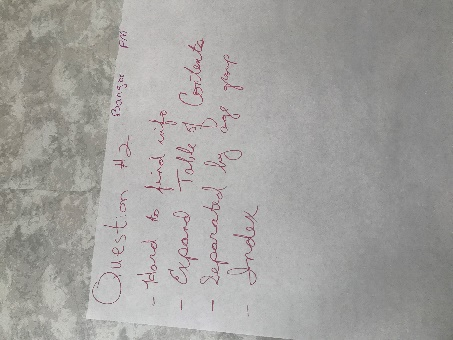 Question #2 Bangor PM
- Hard to find info
- Expand Table of Contents
- Separated by age group
- Index